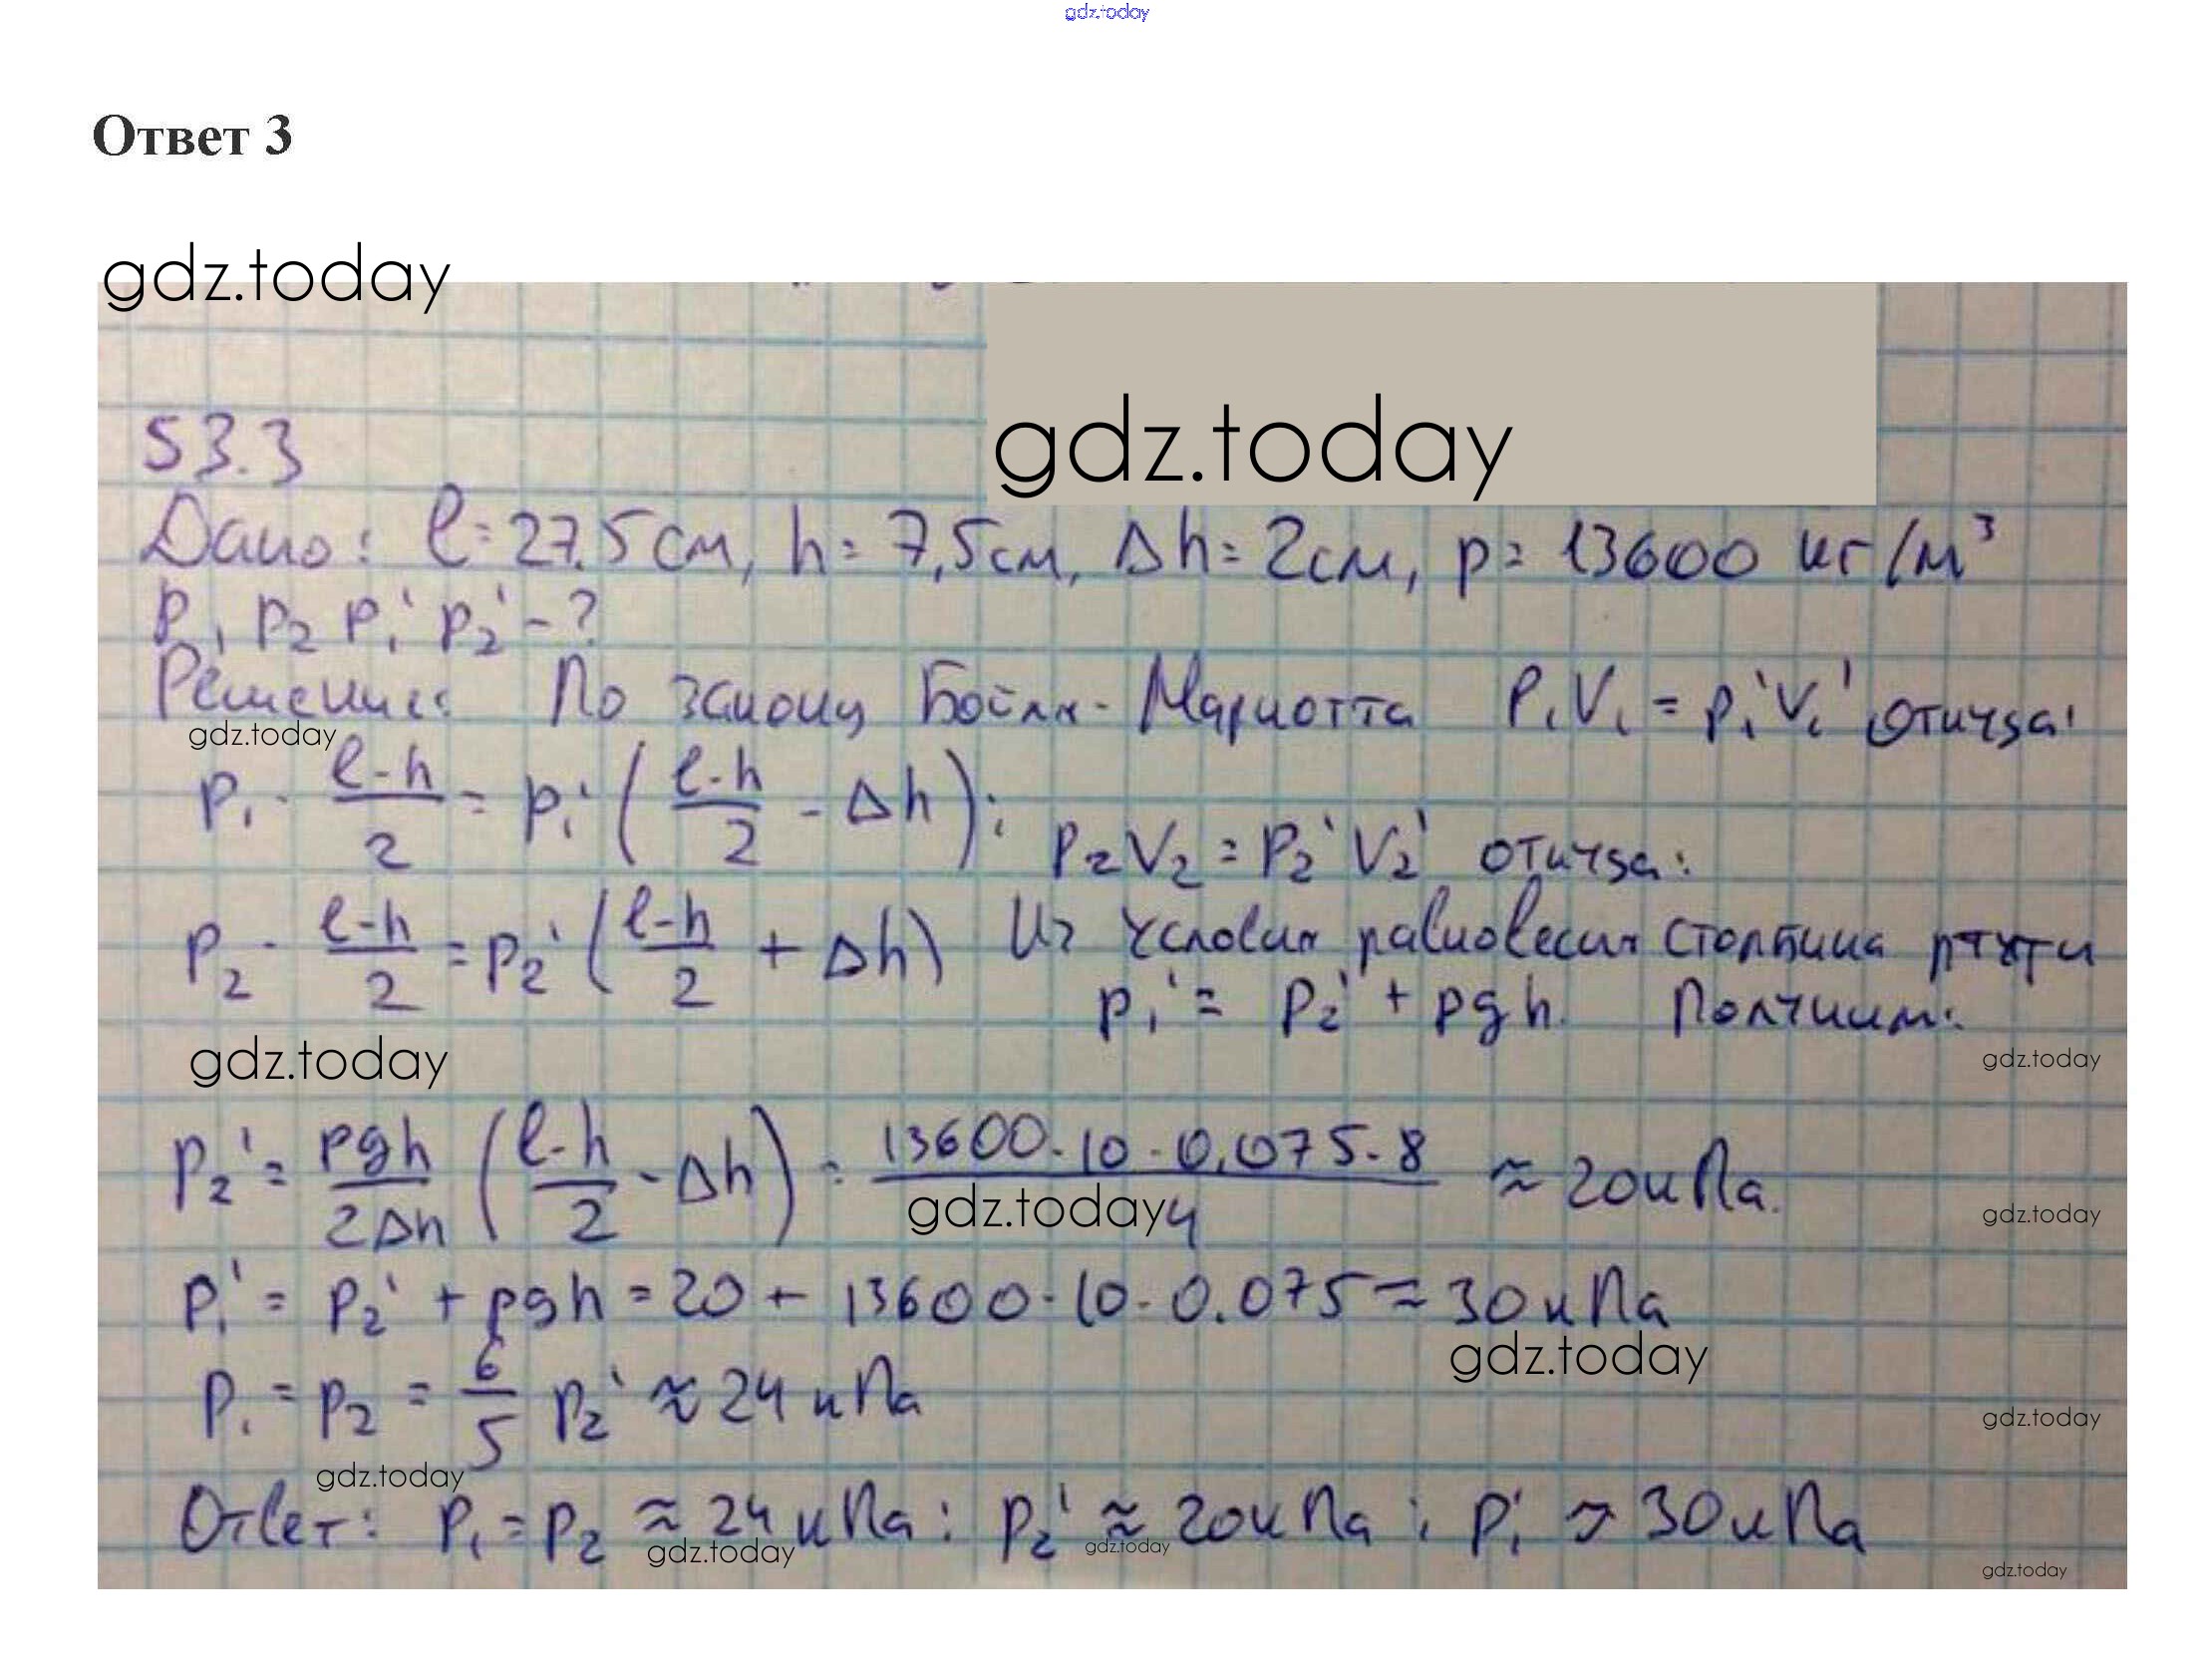 gdz.today
Ответ 3
gdz.today
gdz.today
53.3
Дано: l = 27.5 см, h = 7,5 см, Δh = 2 см, ρ = 13600 кг/м³
P₁ p₂ p₁' p₂' - ?
Решение: По закону Бойля-Мариотта P₁V₁ = p₁'V₁' откуда:
gdz.today
p₁ · (l-h)/2 = p₁' ((l-h)/2 - Δh);
p₂V₂ = p₂'V₂' откуда:
p₂ · (l-h)/2 = p₂' ((l-h)/2 + Δh) Из условия равновесия столбика ртути
p₁' = p₂' + ρgh. Получим:
gdz.today gdz.today
p₂' = ρgh/2Δh ((l-h)/2 - Δh) = 13600·10·0,075·8/4 ≈ 20 кПа.
gdz.today gdz.today
p₁' = p₂' + ρgh = 20 + 13600·10·0.075 ≈ 30 кПа
gdz.today
p₁ = p₂ = 6/5 p₂' ≈ 24 кПа
gdz.today
gdz.today
Ответ: p₁ = p₂ ≈ 24 кПа; p₂' ≈ 20 кПа; p₁' ≈ 30 кПа
gdz.today gdz.today gdz.today